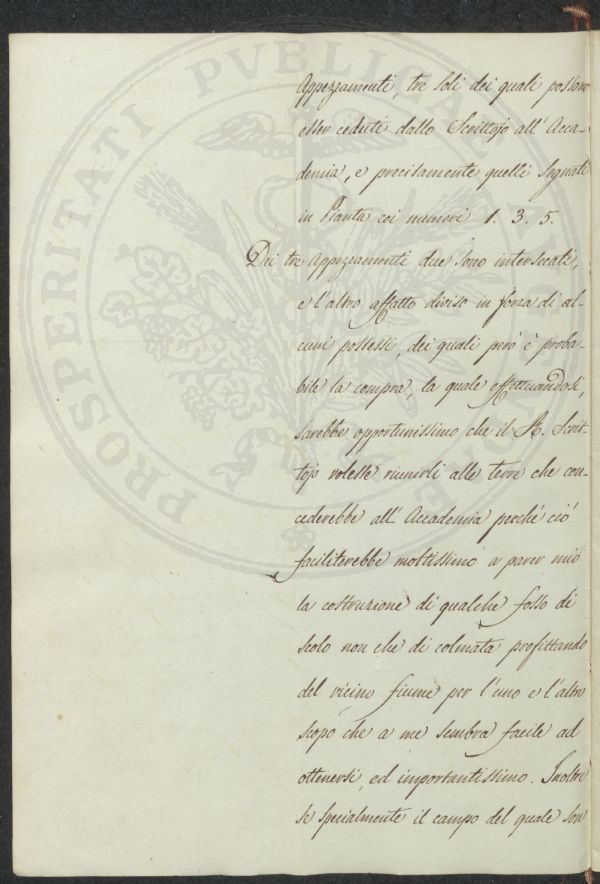 Appezzamenti, tre soli dei quali possono
esser ceduti dallo Scrittojo all' Acca-
demia, e precisamente quelli segnati
in Pianta coi numeri 1. 3. 5.
Dei tre appezzamenti due sono intersecati,
e l'altro affatto diviso in forza di al-
cuni possessi, dei quali però è proba-
bile la compra, la quale effettuandosi,
sarebbe opportunissimo che il R. Scrit-
tojo volesse riunirli alle terre che con-
cederebbe all' Accademia perchè ciò
faciliterebbe moltissimo a parer mio
la costruzione di qualche fosso di
scolo non che di colmata profittando
del vicino fiume per l'uno e l'altro
scopo che a me sembra facile ad
ottenersi, ed importantissimo. Inoltre
se specialmente il campo del quale son
PROSPERITATI PVBLICAE